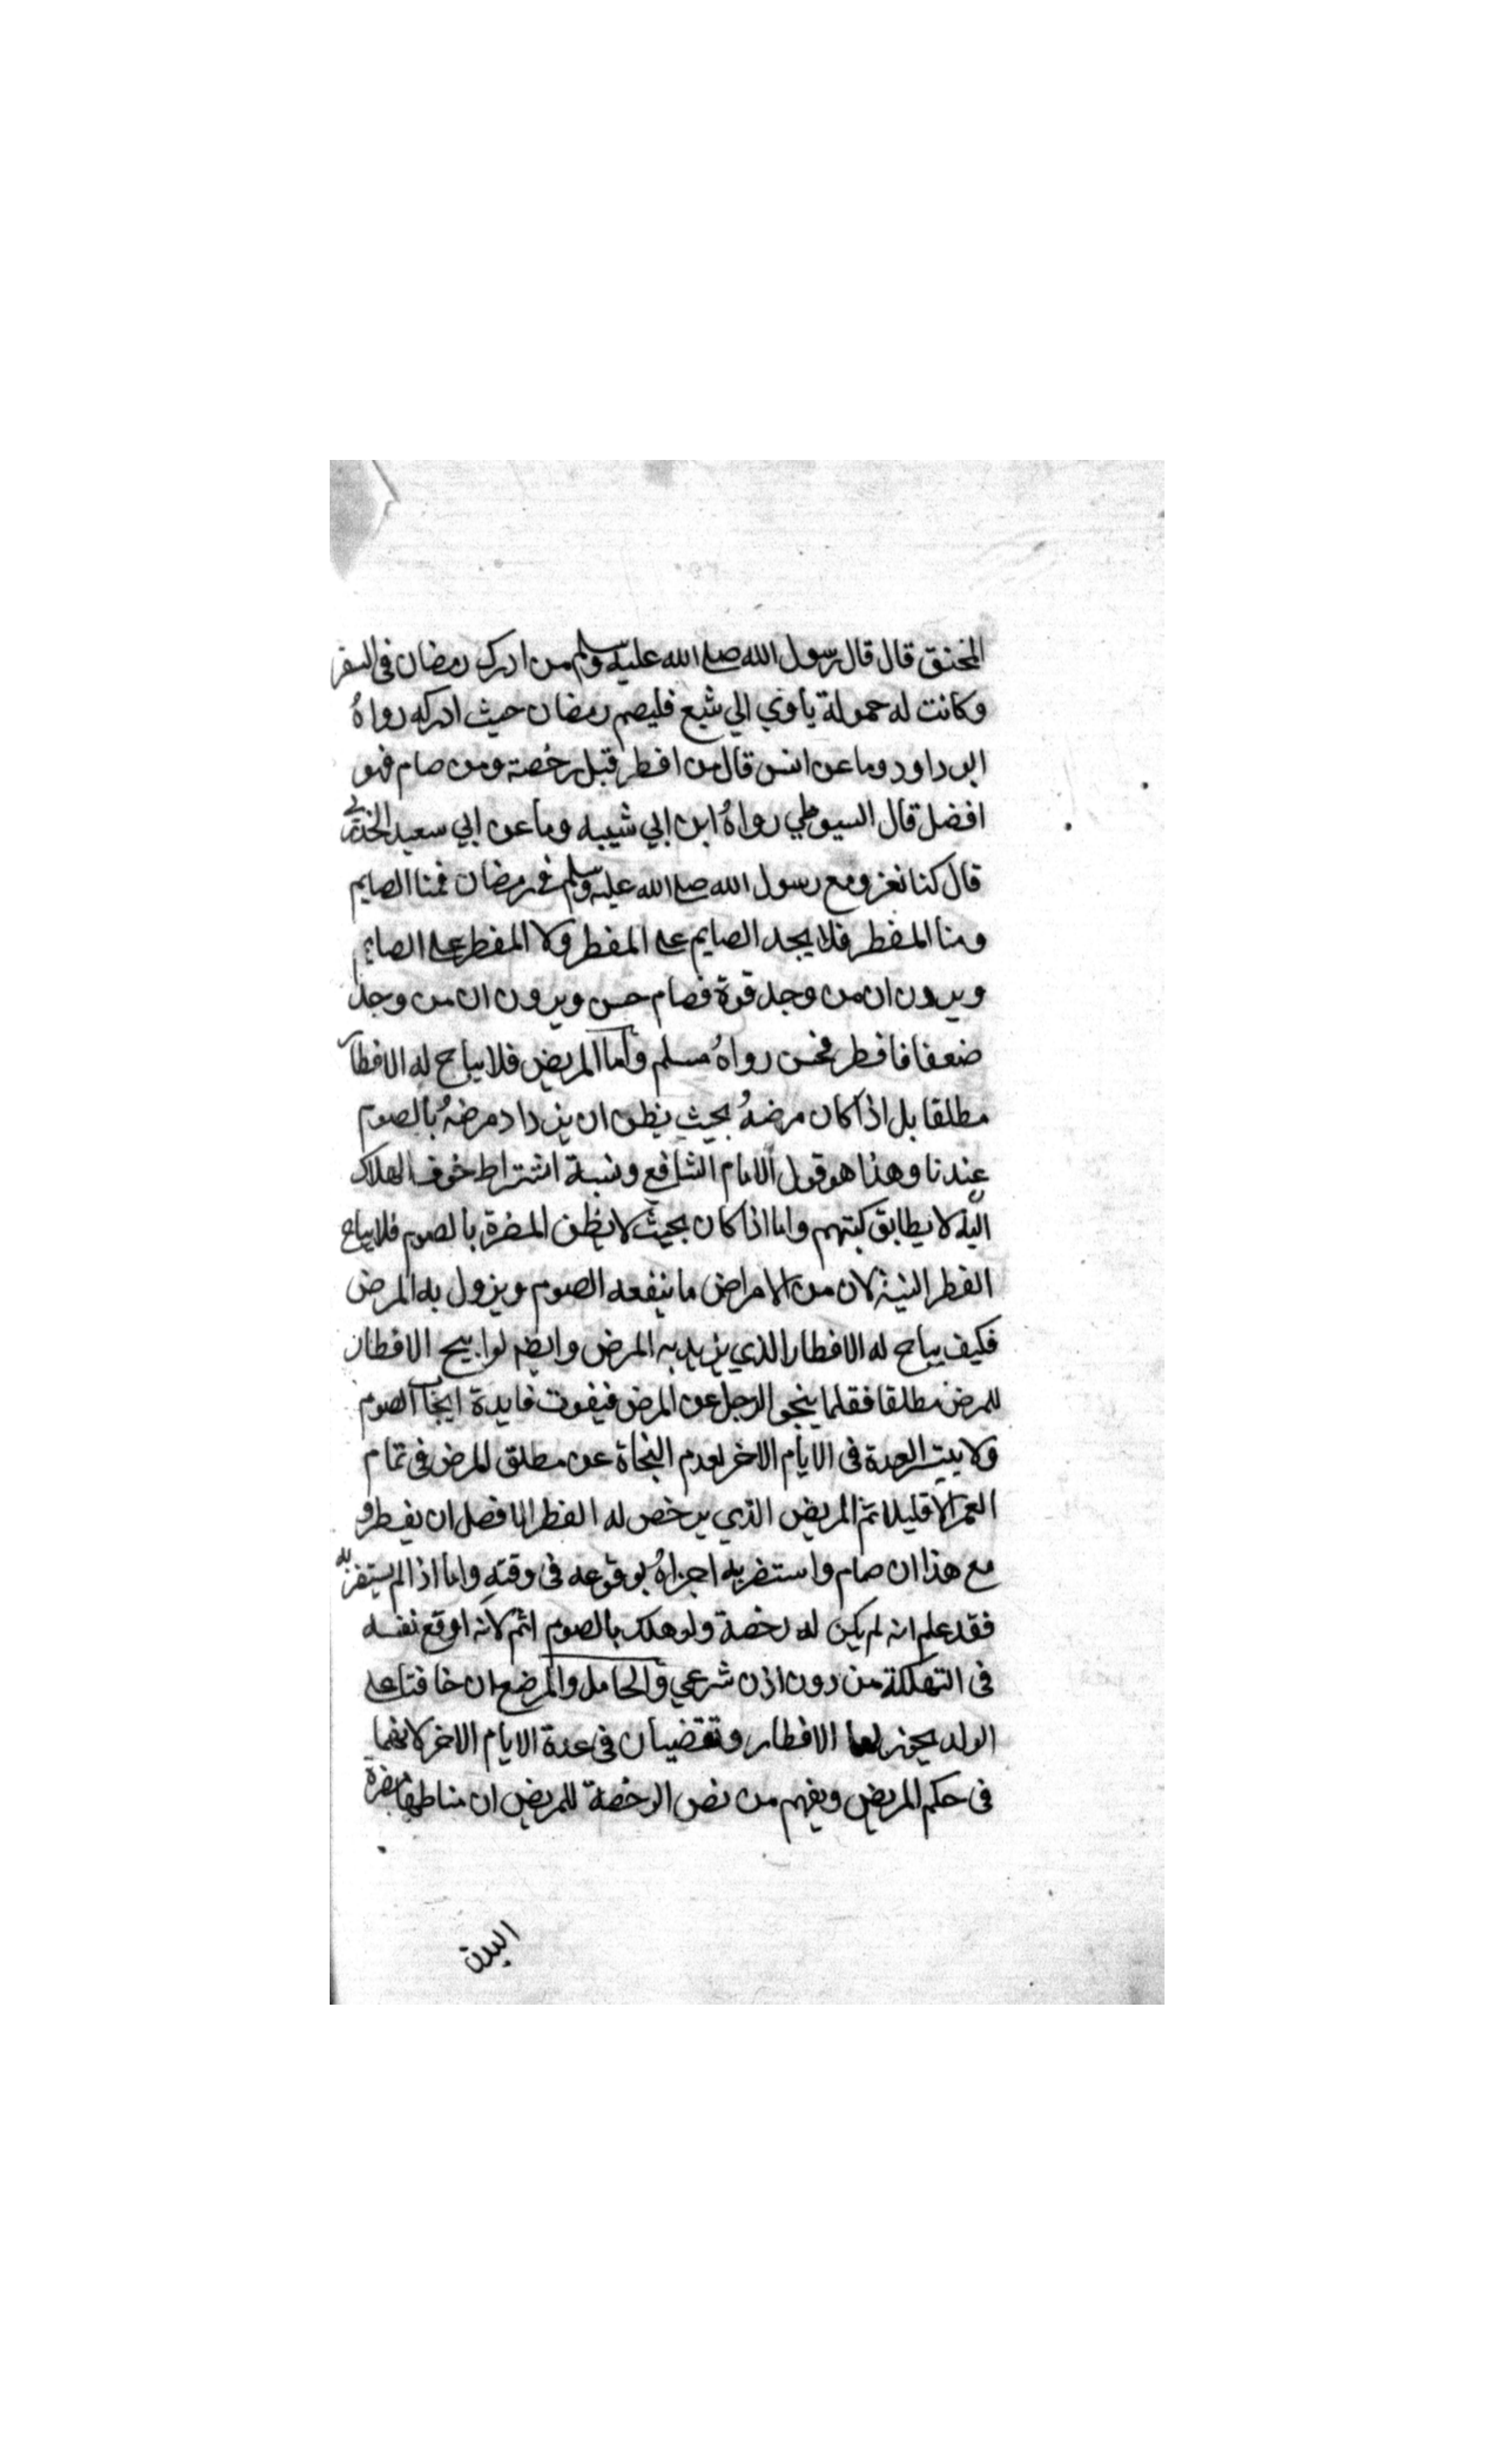 المخنق قال قال رسول الله صلى الله عليه وسلم من ادرك رمضان فى السفر
وكانت له حمولة ياوي الي شبع فليصم رمضان حيث ادركه رواهُ
ابو داود وما عن انس قال من افطر قبل رخصة ومن صام فهو
افضل قال السيوطي رواهُ ابن ابي شيبه وما عن ابي سعيد الخدري
قال كنا نغزو مع رسول الله صلى الله عليه وسلم فى رمضان فمنا الصايم
ومنا المفطر فلا يجد الصايم على المفطر ولا المفطر على الصايم
ويرون ان من وجد قوة فصام حسن ويرون ان من وجد
ضعفا فافطر فحسن رواهُ مسلم واما المريض فلا يباح له الافطار
مطلقا بل اذا كان مرضهُ بحيث يظن ان يزداد مرضهُ بالصوم
عندنا وهذا هو قول الامام الشافع ونسبة اشتراط خوف الهلاك
اليه لا يطابق كتبهم واما اذا كان بحيث لا يظن المضرة بالصوم فلا يباح
الفطر البتة لان من الامراض ما ينفعه الصوم ويزول به المرض
فكيف يباح له الافطار الذي يزيد به المرض وايضا لو ابيح الافطار
للمرض مطلقا فقلما ينجو الرجل عن المرض فيفوت فايدة ايجاب الصوم
ولا يبت العدة فى الايام الاخر لعدم النجاة عن مطلق المرض فى تمام
العمر الا قليلا ثم المريض الذي يرخص له الفطر الافضل ان يفطر و
مع هذا ان صام واستضر به اجزاهُ بوقوعه فى وقته واما اذا لم يستضر به
فقد علم انه لم يكن له رخصة ولو هلك بالصوم اثم لانه اوقع نفسه
فى التهلكة من دون اذن شرعي والحامل والمرضع ان خافتا على
الولد يجوز لهما الافطار وتقضيان فى عدة الايام الاخر لانهما
فى حكم المريض ويفهم من نص الرخصة للمريض ان مناطها مضرة
البدن